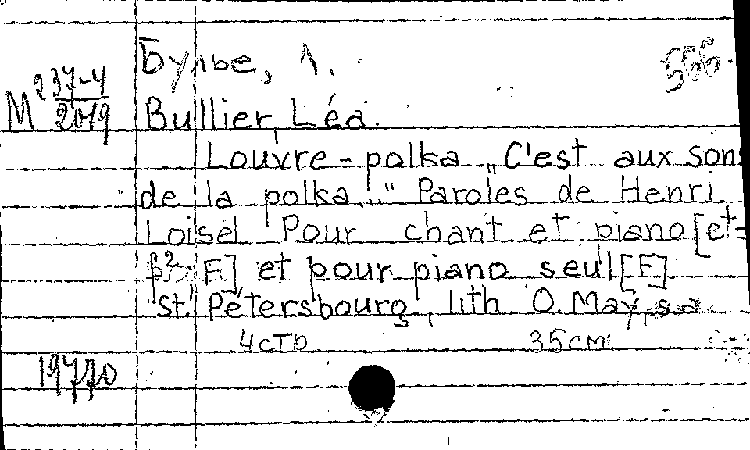 Булье, Л.
М 237-4
2019
Bullier, Léa.
Louvre-polka „C'est aux sons
de la polka..." Paroles de Henri
Loisel Pour chant et piano [c¹-
f² F] et pour piano seul [F]
St. Pétersbourg, lith O. May, s.a.
4 стр 35 см
19770